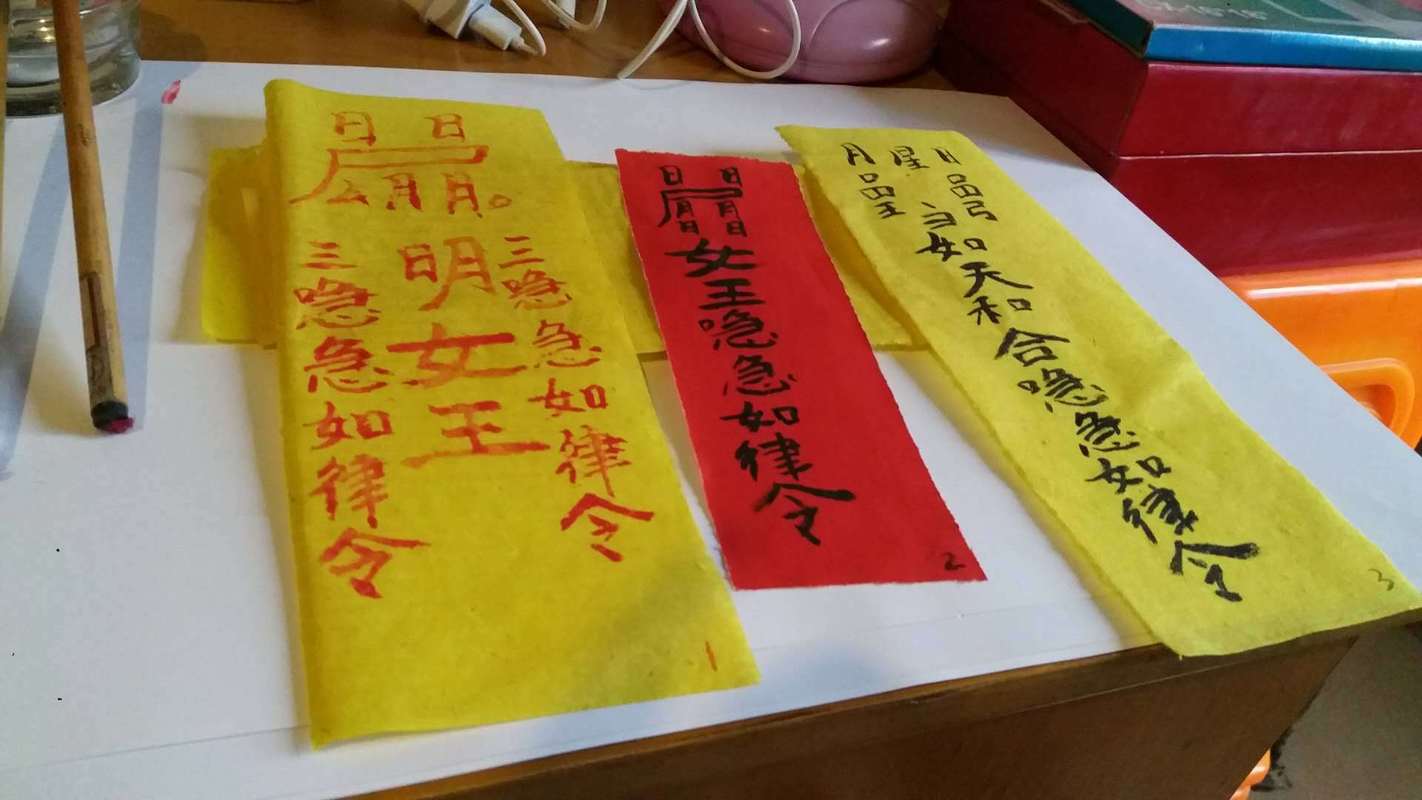 日 日
月 月
三喼急如律令
明女王
三喼急如律令
1
日 日
月 月
日 日
女王喼急如律令
2
月 星 日
如天和合喼急如律令
3